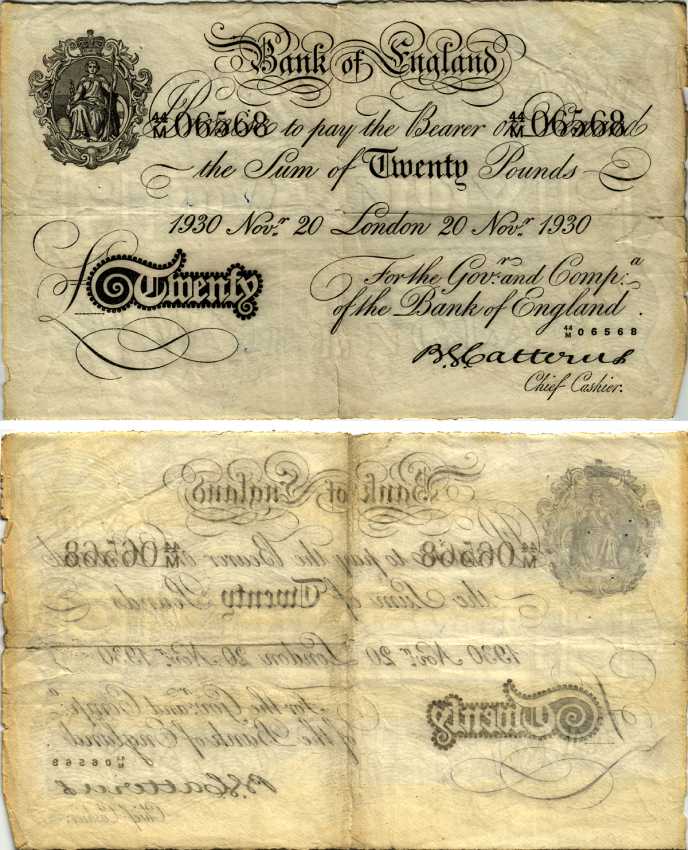 Bank of England
I Promise to pay the Bearer on Demand
44/M 06568 44/M 06568
the Sum of Twenty Pounds
1930 Novr. 20 London 20 Novr. 1930
£ Twenty
For the Govr. and Compa.
of the Bank of England
44/M 06568
B.G. Catterns
Chief Cashier.